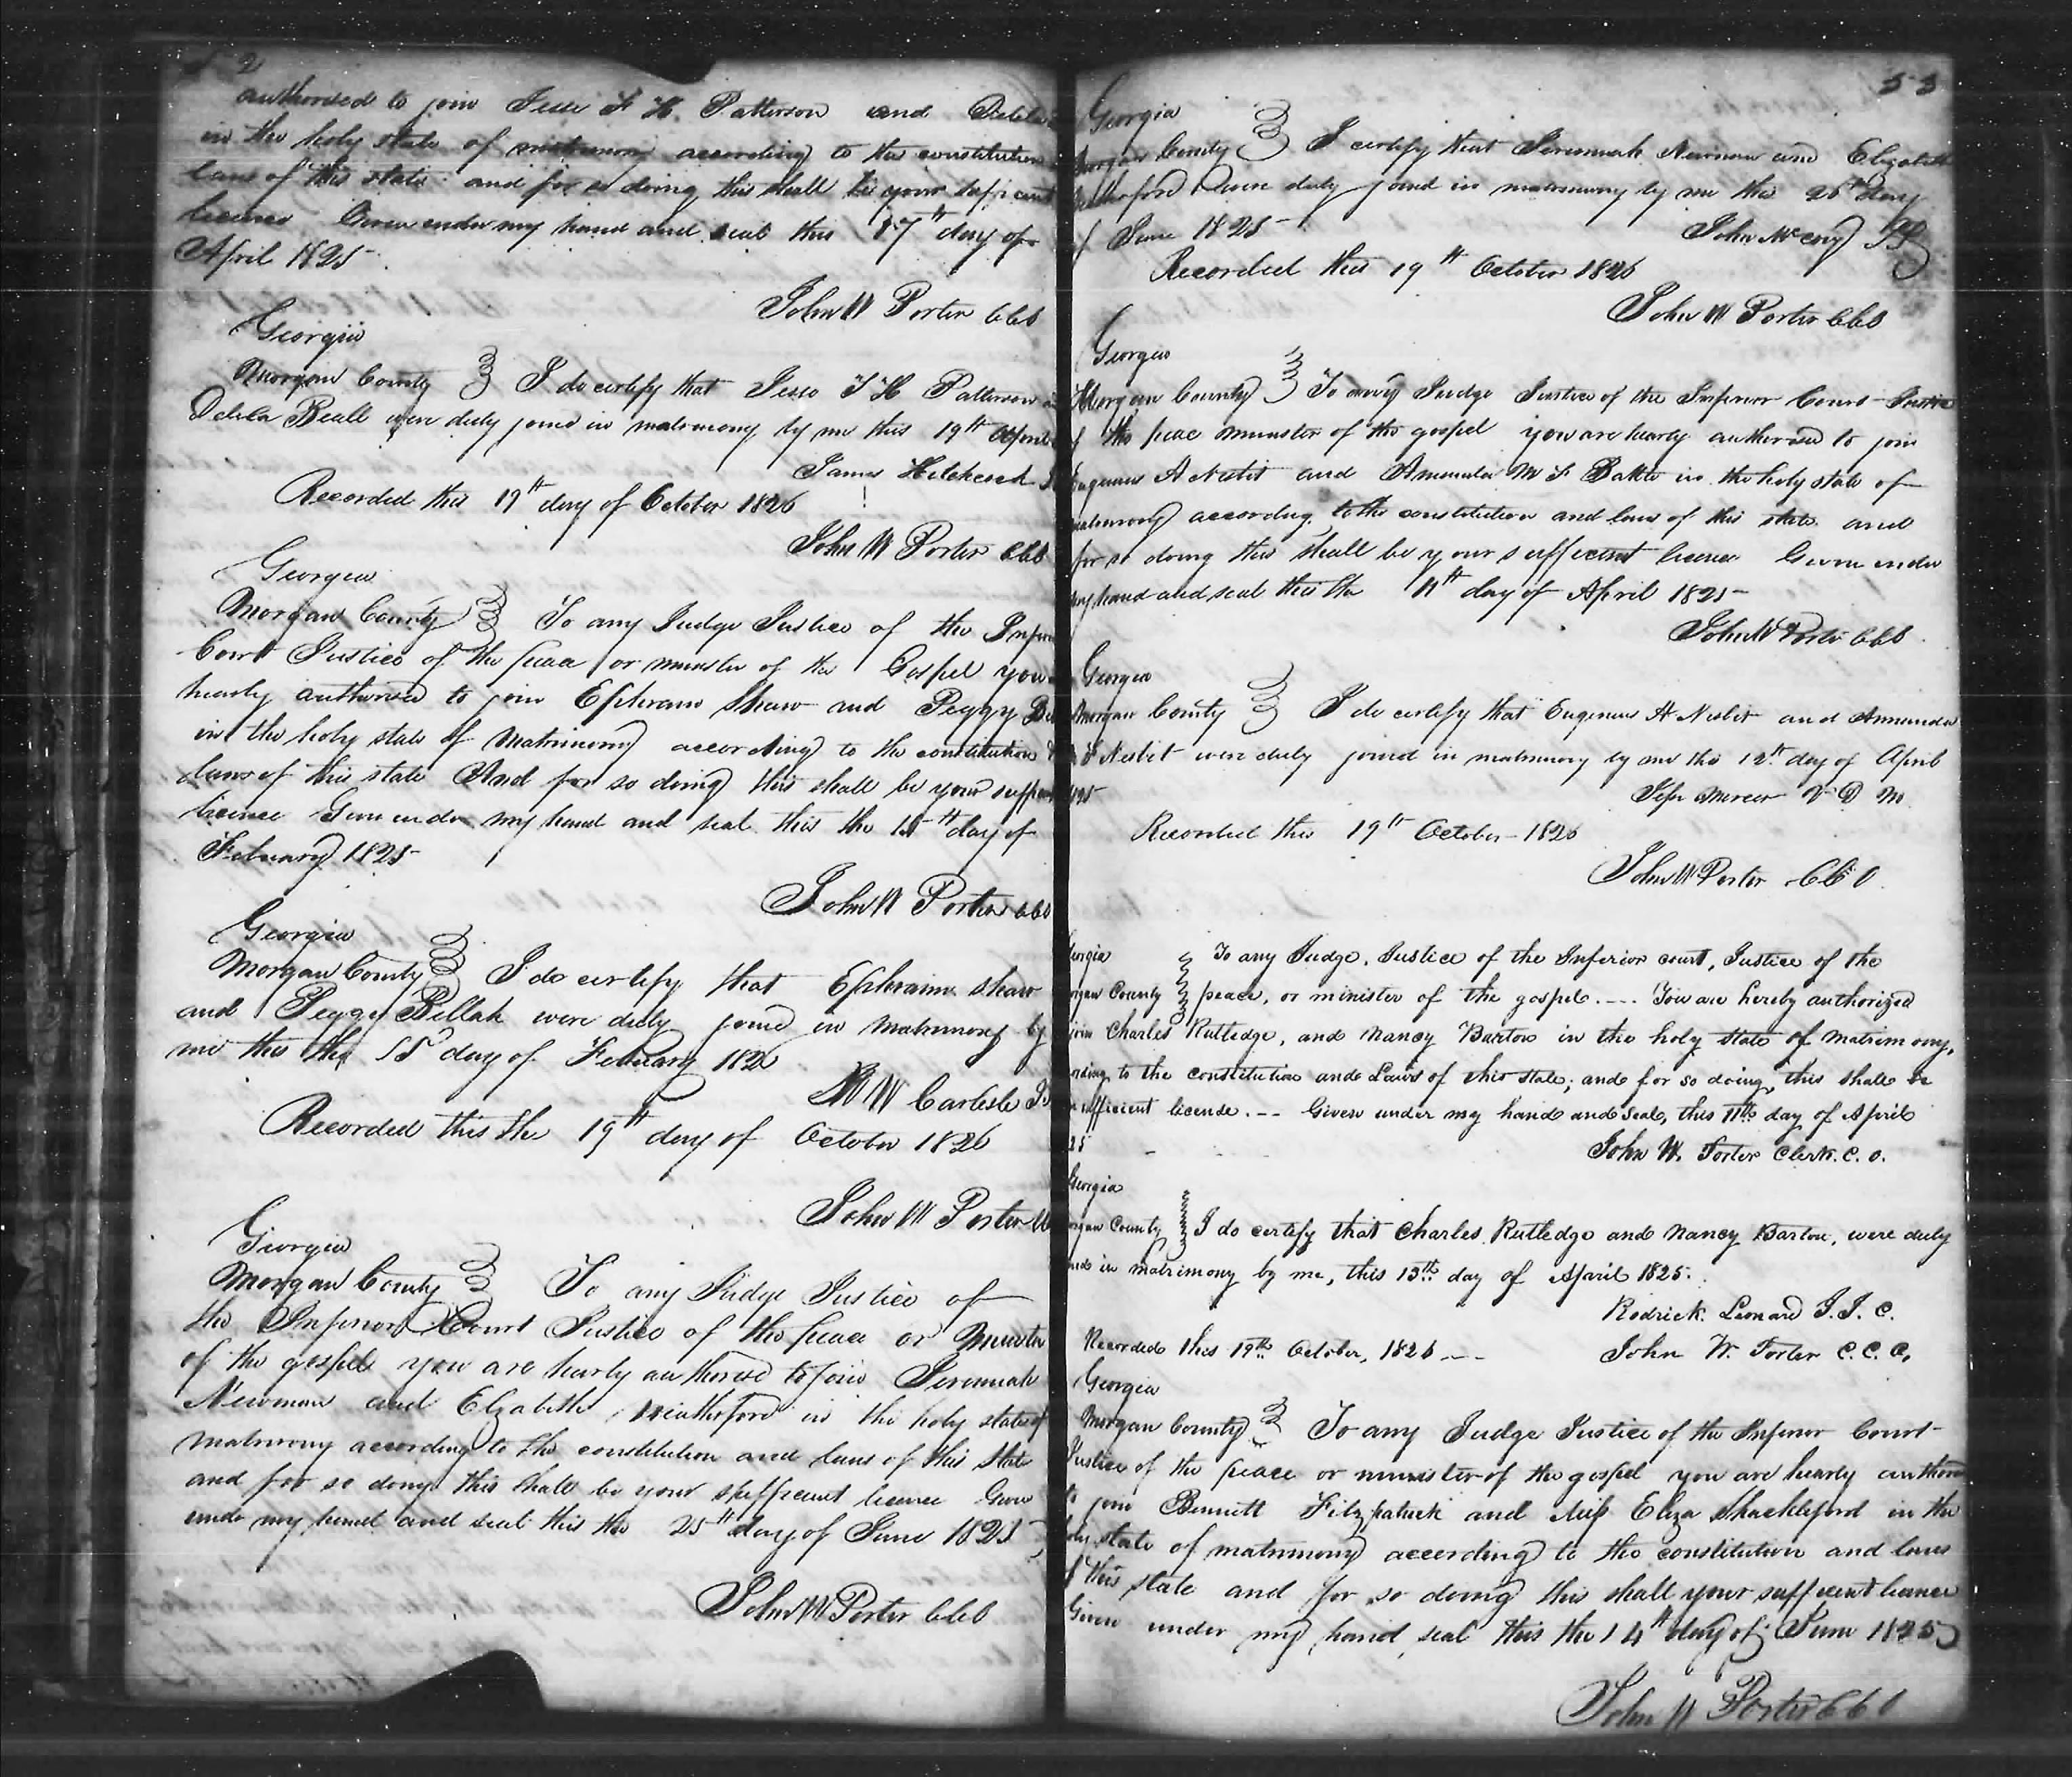 2
authorised to join Jesse F H. Patterson and Delila
in the holy state of matrimony according to the constitution
laws of this state and for so doing this shall be your suficient
licence Given under my hand and seal this 17th day of
April 1825
John W Porter CCO
Georgia
Morgan County I do certify that Jesse F H Patterson
Delila Beall were duly joind in matrimony by me this 19th April
James Hitchcock
Recorded this 19th day of October 1826
John W Porter CCO
Georgia
Morgan County To any Judge Justice of the Infer
Court Justice of the peace or minister of the Gospel you
hearly authorised to join Ephraim Shaw and Peggy
in the holy state of Matrimony according to the constitution
laws of this state And for so doing this shall be your suffi
licence Given under my hand and seal this the 15th day of
February 1825
John W Porter CCO
Georgia
Morgan County I do certify that Ephraim Shaw
and Peggy Bellah were duly joind in matrimony by
me this the 15 day of February 182
Carlisle
Recorded this the 19th day of October 1826
John W Porter
Georgia
Morgan County To any Judge Justice of
the Inferior Court Justice of the peace or Minister
of the gospel you are hearly authorised to join Jeremiah
Newman and Elizabeth Weatherford in the holy state of
matrimony according to the constitution and laws of this state
and for so doing this shall be your sufficient licence Given
under my hand and seal this the 25th day of June 1825
John W Porter CCO
53
Georgia
Morgan County I certify that Jeremiah Newman and Elizabeth
were duly joind in matrimony by me the 26th day
of June 1825
John McCoy
Recorded this 19th October 1826
John W Porter CCO
Georgia
Morgan County To any Judge Justice of the Inferior Court Justice
of the peace minister of the gospel you are hearly authorised to join
Eugenius A Nesbit and Amanda M F Battle in the holy state of
matrimony according to the constitution and laws of this state and
for so doing this shall be your sufficient licence Given under
my hand and seal this the 11th day of April 1825
John W Porter CCO
Georgia
Morgan County I do certify that Eugenius A Nesbit and Amanda
F Nesbit were duly joind in matrimony by me the 12th day of April
1825
Mercer V D M
Recorded this 19th October 1826
John W Porter CCO
orgia To any Judge, Justice of the Inferior court, Justice of the
organ County peace, or minister of the gospel. --- You are hereby authorized
join Charles Rutledge, and Nancy Barton in the holy state of matrimony,
ording to the constitution and Laws of this state; and for so doing, this shall be
sufficient license. -- Given under my hand and seal, this 11th day of April
25
John W. Porter Clerk. C. O.
Georgia
organ County I do certify that Charles Rutledge and Nancy Barton, were duly
ined in matrimony by me, this 13th day of April 1825.
Rodrick Leonard J. I. C.
Recorded this 19th October, 1826 ---
John W. Porter C. C. O.
Georgia
Morgan County To any Judge Justice of the Inferior Court
Justice of the peace or minister of the gospel you are hearly author
to join Bennett Fitzpatrick and Miss Eliza Shackleford in the
holy state of matrimony according to the constitution and laws
of this state and for so doing this shall your sufficient licence
Given under my hand seal this the 14th day of June 1825
John W Porter CCO